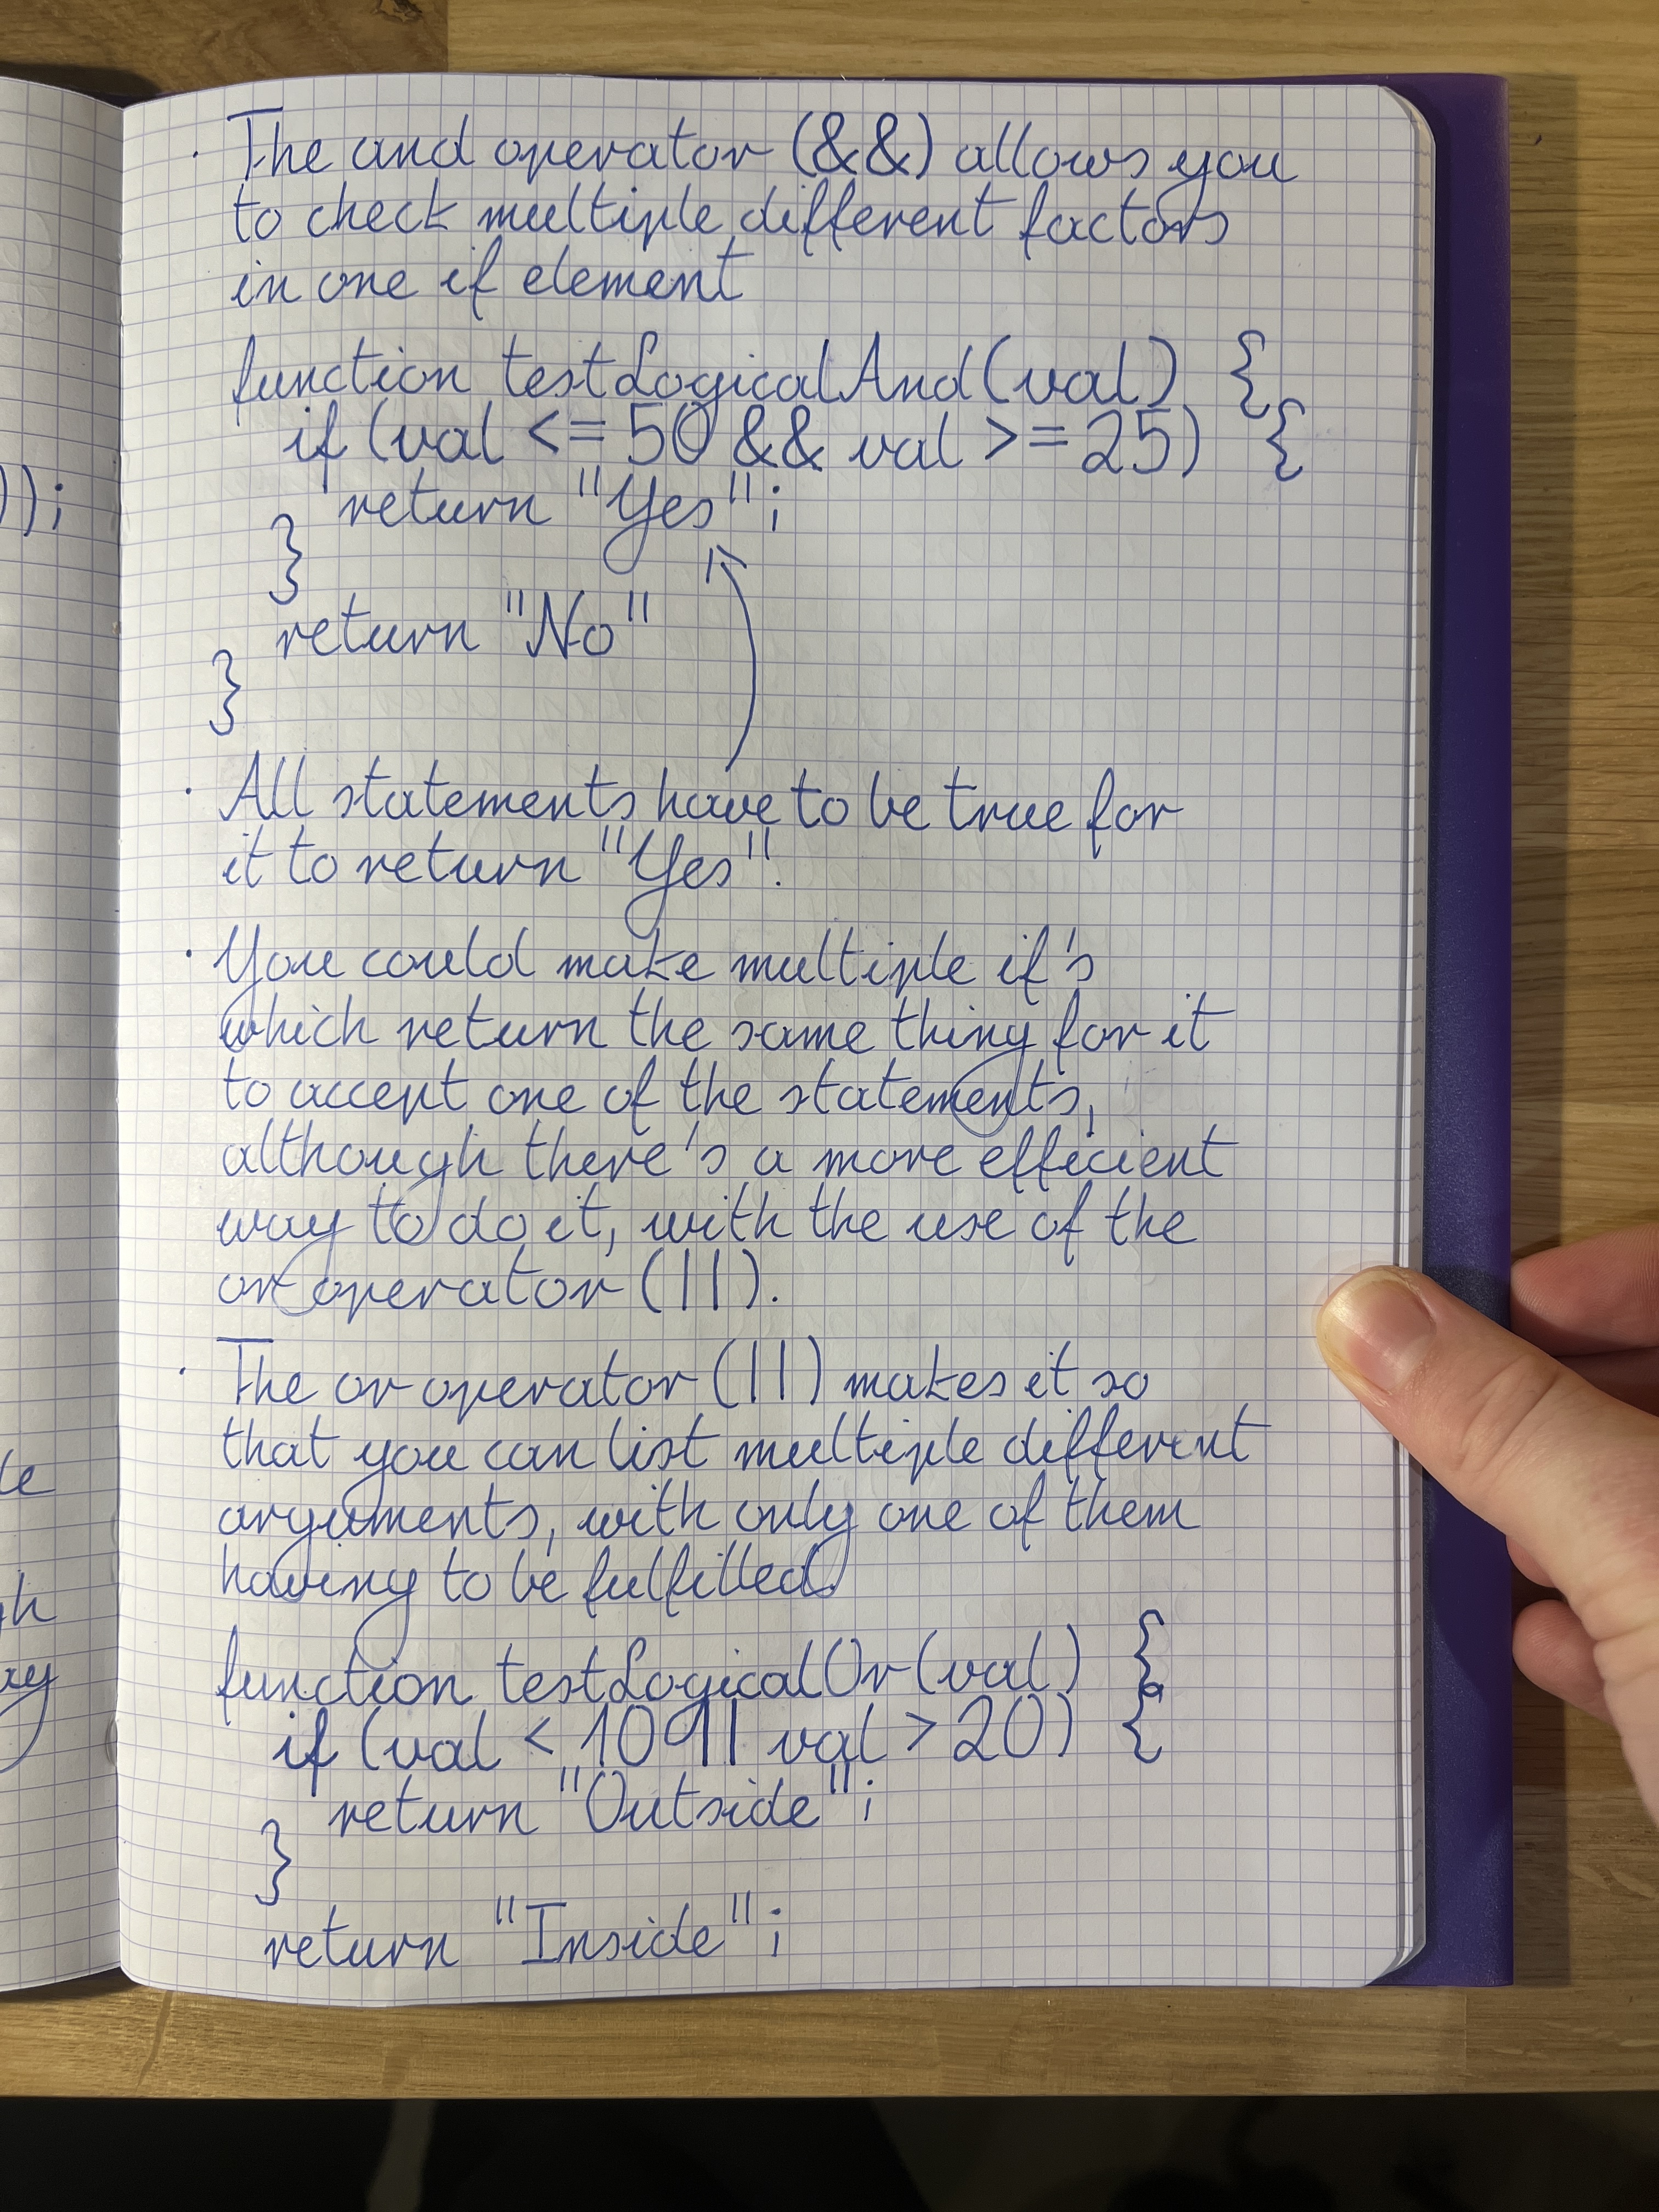 · The and operator (&&) allows you
to check multiple different factors
in one if element
function testLogicalAnd(val) {
if (val <= 50 && val >= 25) {
return "Yes";
}
return "No"
}
· All statements have to be true for
it to return "Yes".
· You could make multiple if's
which return the same thing for it
to accept one of the statements,
although there's a more efficient
way to do it, with the use of the
or operator (||).
· The or operator (||) makes it so
that you can list multiple different
arguments, with only one of them
having to be fulfilled.
function testLogicalOr(val) {
if (val < 10 || val > 20) {
return "Outside";
}
return "Inside";
));